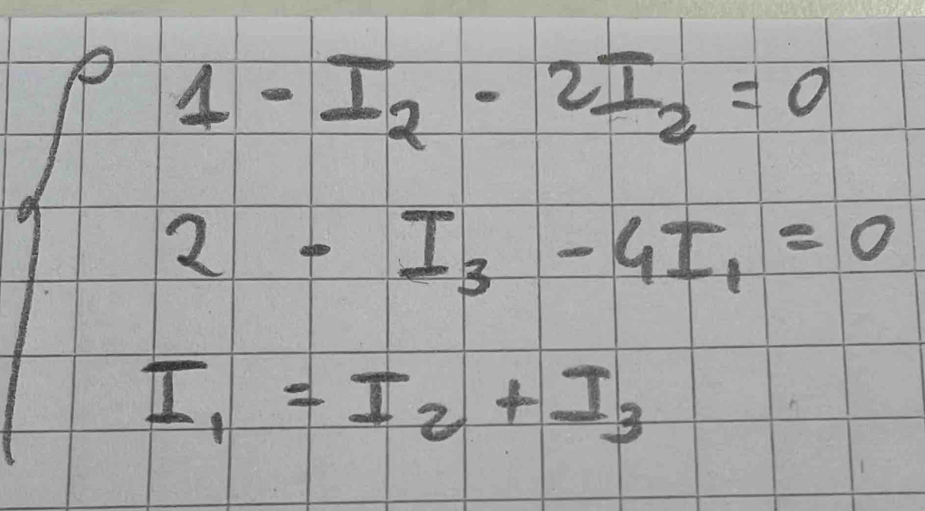 1 - I₂ - 2I₂ = 0
2 - I₃ - 4I₁ = 0
I₁ = I₂ + I₃